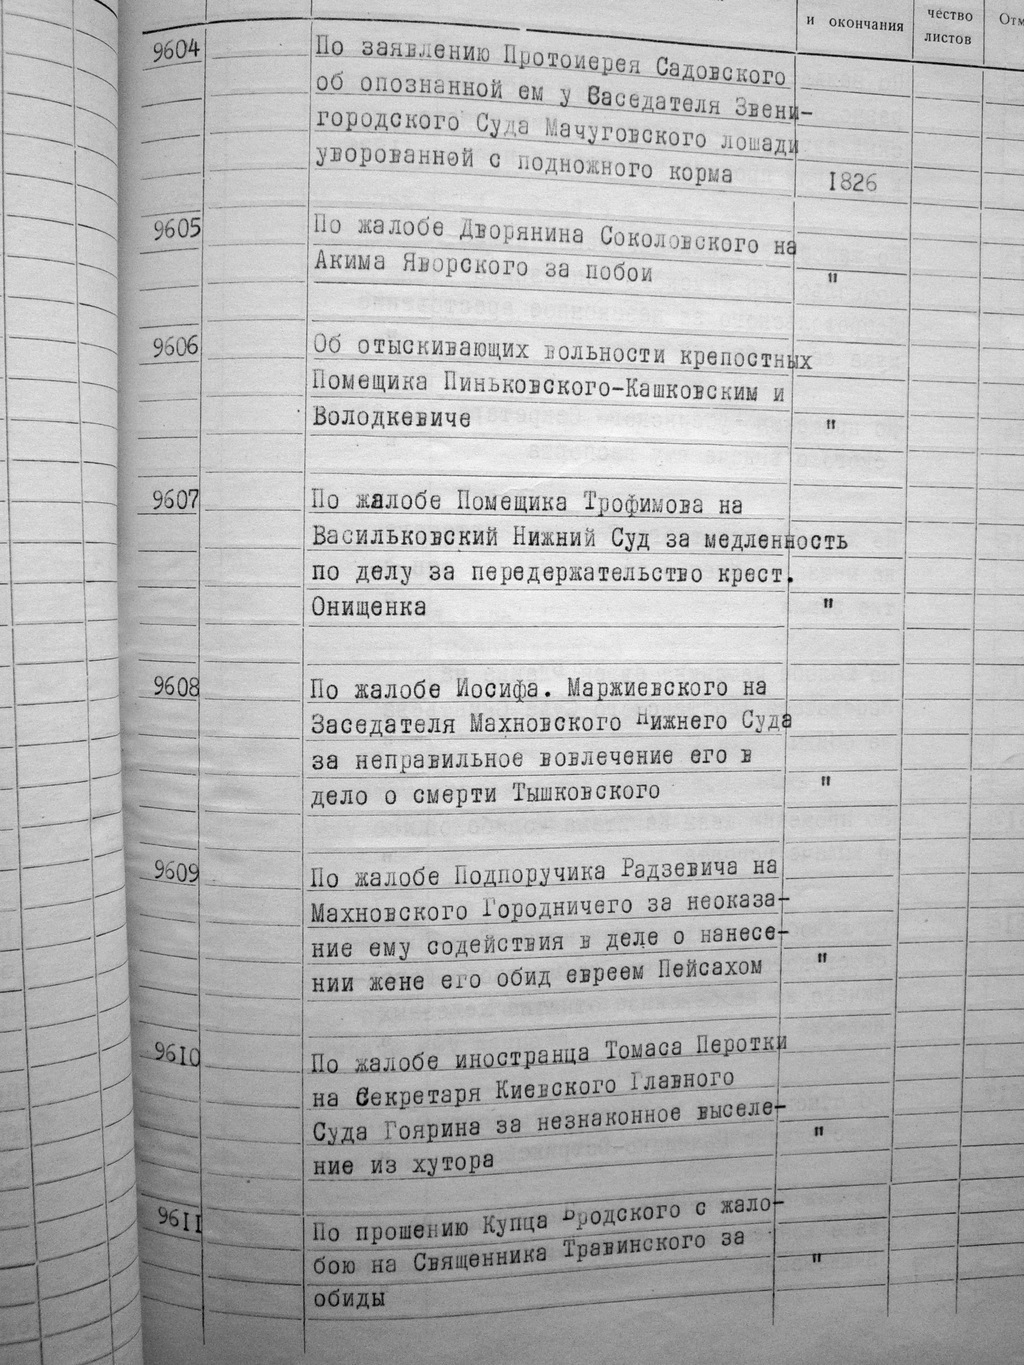 и окончания
чество
листов
Отм
9604
По заявлению Протоиерея Садовского
об опознанной ем у Заседателя Звени-
городского Суда Мачуговского лошади
уворованней с подножного корма
1826
9605
По жалобе Дворянина Соколовского на
Акима Яворского за побои
"
9606
Об отыскивающих вольности крепостных
Помещика Пиньковского-Кашковским и
Володкевиче
"
9607
По жалобе Помещика Трофимова на
Васильковский Нижний Суд за медленность
по делу за передержательство крест.
Онищенка
"
9608
По жалобе Иосифа. Маржиевского на
Заседателя Махновского Нижнего Суда
за неправильное вовлечение его в
дело о смерти Тышковского
"
9609
По жалобе Подпоручика Радзевича на
Махновского Городничего за неоказа-
ние ему содействия в деле о нанесе-
нии жене его обид евреем Пейсахом
"
9610
По жалобе иностранца Томаса Перотки
на Секретаря Киевского Главного
Суда Гоярина за незнаконное выселе-
ние из хутора
"
9611
По прошению Купца Бродского с жало-
бою на Священника Травинского за
обиды
"